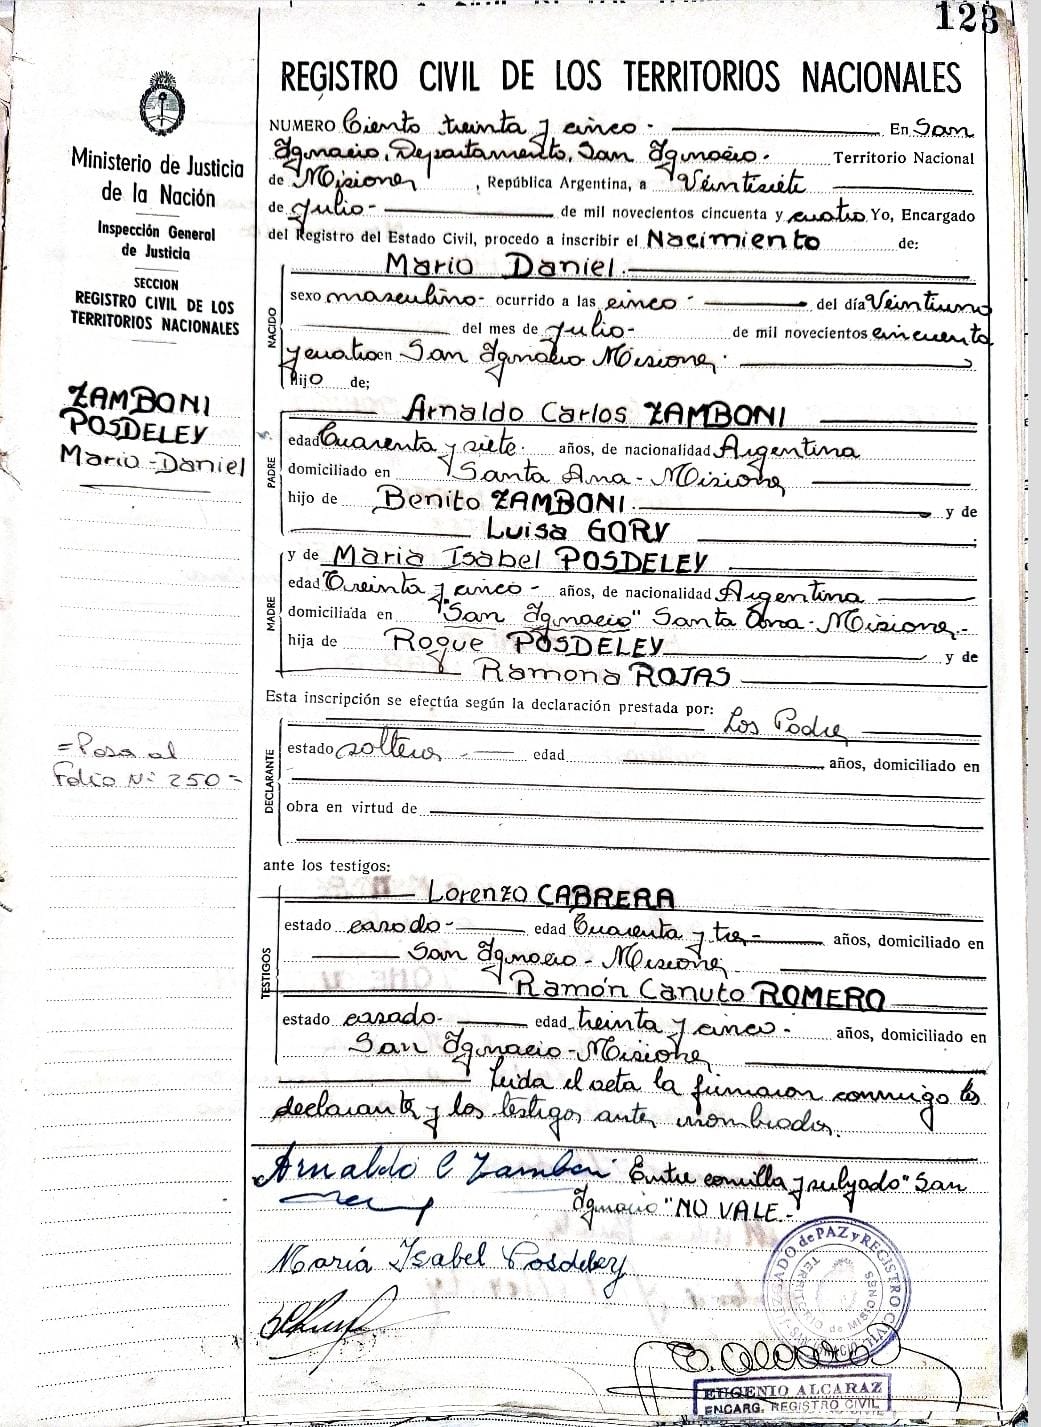 123
REGISTRO CIVIL DE LOS TERRITORIOS NACIONALES
Ministerio de Justicia
de la Nación
Inspección General
de Justicia
SECCION
REGISTRO CIVIL DE LOS
TERRITORIOS NACIONALES
ZAMBONI
POSDELEY
Mario-Daniel
=Pasa al
Folio Nº 250=
NUMERO Ciento treinta y cinco - En San
Ignacio, Departamento, San Ignacio. Territorio Nacional
de Misiones, República Argentina, a Veintisiete
de Julio- de mil novecientos cincuenta y cuatro Yo, Encargado
del Registro del Estado Civil, procedo a inscribir el Nacimiento de:
NACIDO
Mario Daniel.
sexo masculino- ocurrido a las cinco- del día Veintiuno
del mes de Julio- de mil novecientos cincuenta
y cuatro en San Ignacio Misiones.
Hijo de;
PADRE
Arnaldo Carlos ZAMBONI
edad Cuarenta y siete. años, de nacionalidad Argentina
domiciliado en Santa Ana-Misiones
hijo de Benito ZAMBONI. y de
Luisa GORY
MADRE
y de Maria Isabel POSDELEY
edad Treinta y cinco- años, de nacionalidad Argentina
domiciliada en "San Ignacio" Santa Ana-Misiones-
hija de Roque POSDELEY y de
Ramona ROJAS
Esta inscripción se efectúa según la declaración prestada por: Los Padres
DECLARANTE
estado solteros - edad años, domiciliado en
obra en virtud de
ante los testigos:
TESTIGOS
Lorenzo CABRERA
estado casado- edad Cuarenta y tres- años, domiciliado en
San Ignacio-Misiones
Ramón Canuto ROMERO
estado casado- edad treinta y cinco- años, domiciliado en
San Ignacio-Misiones
Leida el acta la firmaron conmigo los
declarantes y los testigos antes nombrados.
Arnaldo C Zamboni Entre comilla y sulyado "San
Ignacio" NO VALE.-
María Isabel Posdeley
JUZGADO de PAZ y REGISTRO CIVIL
TERRITORIO de MISIONES
E. Alcaraz
EUGENIO ALCARAZ
ENCARG. REGISTRO CIVIL